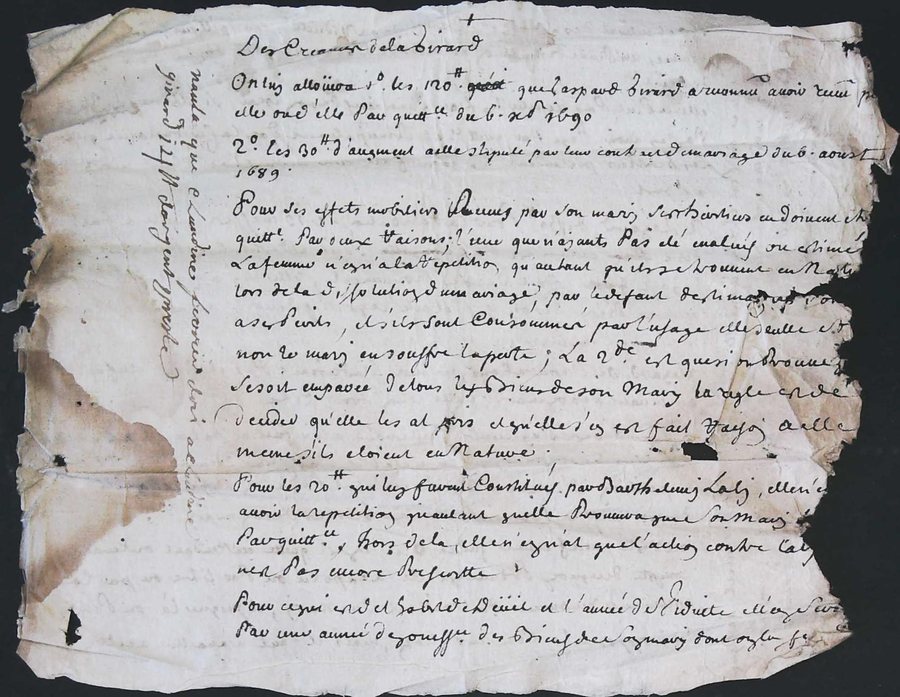 Des Creances de la Girard
On luy alloüera 1°. les 120 ᵗᵗ que Gaspard Girard a reconnu avoir receu
elle par quittce du 6. xbr 1690
2°. les 30 ᵗᵗ d'augment a elle stipulé par leur contract de mariage du 6. aoust
1689.
Pour ses effets mobiliers par son mary ses heritiers en doivent
quitts. Par deux raisons; l'une que n'ayants pas eté evalués ou estimés
La femme n'en a la repetition qu'autant qu'ils se trouvent en
lors de la dissolution du mariage, par le defaut d'estimation
a ses perils, et s'ils sont consommés par l'usage elle seulle
non le mary en souffre la perte; La 2de est que si on prouve
se soit emparée de tous les Biens de son Mary la regle est de
decider qu'elle les a pris et qu'elle s'en est fait raison a elle
meme s'ils etoient en Nature.
Pour les 20 ᵗᵗ qui luy furent Constitués par Barthelemy elle n'en
avoir la repetition qu'autant qu'elle prouvera que son Mary
Par quittce, hors de la, elle n'a que l'action contre
n'est Pas encore Prescritte
Pour ce qui est de l'habit de deüil et l'année de elle
Par une année de jouissce des Biens de son mary dont on
que Claudine doit a
girard 12 ᵗᵗ d'argent presté